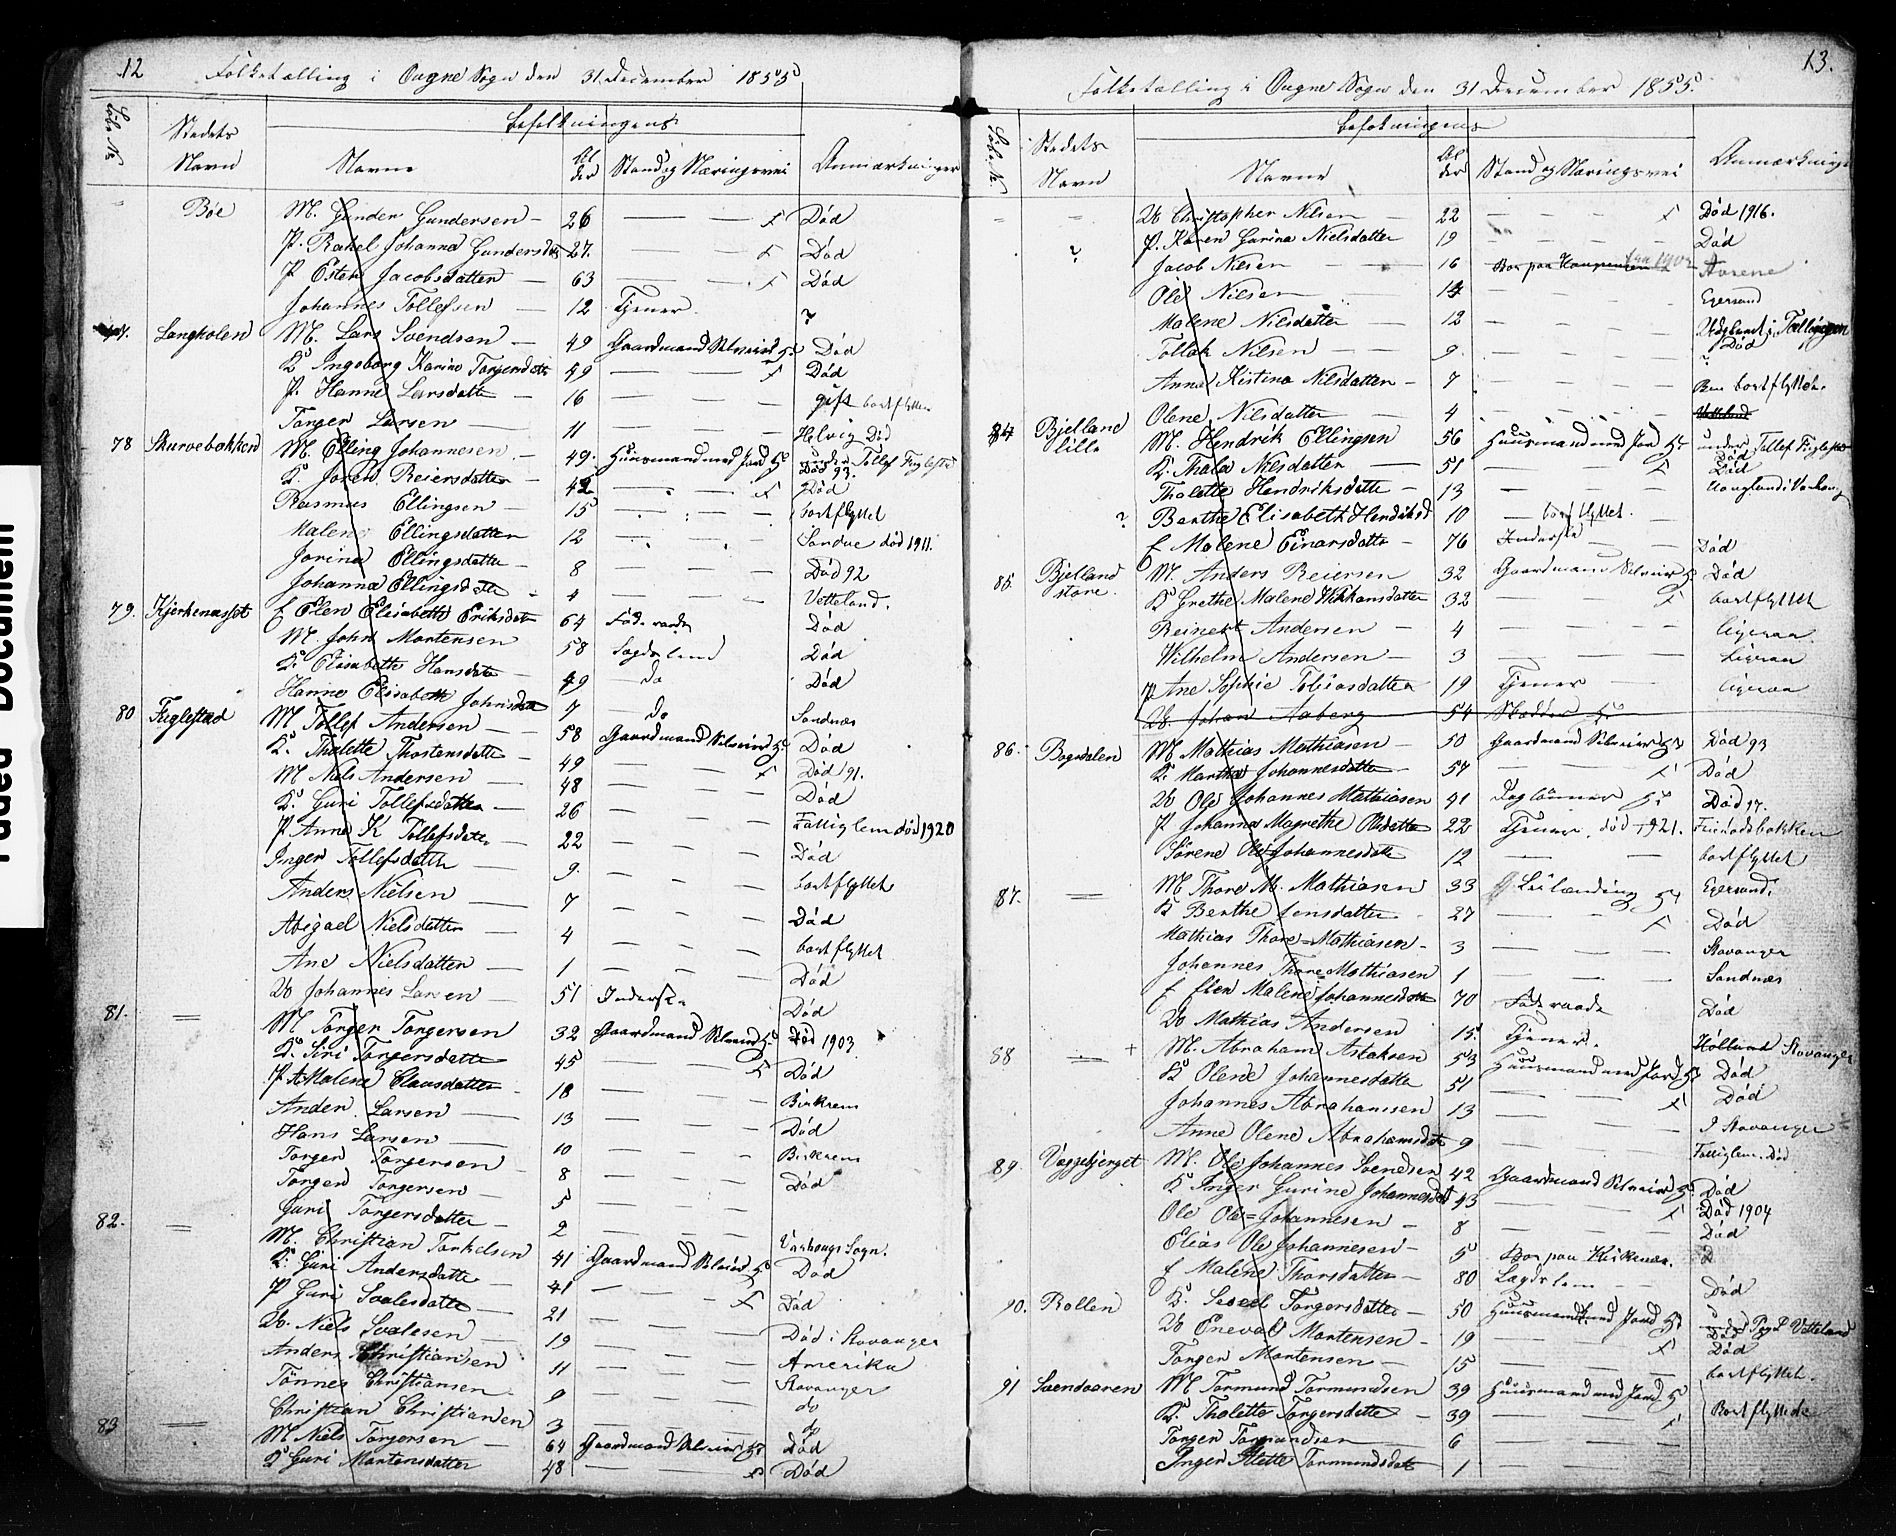 12 Folketælling i Ougne Sogn den 31. December 1855
Løbe No Stedets Navn Befolkningens Navne Alder Stand og Næringsvei Anmærkninger
Bøe M. Gunder Gundersen 26 Død
P. Rakel Johanna Gundersdtr 27 Død
P Ester Jacobsdatter 63 Død
Johannes Tollefsen 12 Tjener ?
Langholen M. Lars Svendsen 49 Gaardmand Selveier Død
K Ingeborg Karine Torgersdatter 59 Død
P. Hanne Larsdatter 16 gift bortflyttet
Torger Larsen 11 Helvig Død
78 Skurvebakken M. Elling Johannesen 49 Huusmand med Jord under Tollef Fuglestad Død 93.
K. Joren Reiersdatter 42 Død
Rasmus Ellingsen 15 bortflyttet
Malene Ellingsdatter 12 Sandve død 1911.
Jorina Ellingsdatter 8 Død 92
Johanna Ellingsdatter 4 Vetteland.
79. Kjerkenæsset E Elen Elisabeth Eriksdatter 64 Føderaade Død
M. John Mortensen 58 Lægdslem Død
K. Elisabeth Hansdatter 49 do Død
Hanne Elisabeth Johnsdatter 7 do Sandnæs
80 Fuglestad M Tollef Andersen 58 Gaardmand Selveier Død
K. Tholette Thostensdatter 49 Død 91.
M Niels Andersen 48 Død
K. Guri Tollefsdatter 26 Fattiglem død 1920
P Anne K Tollefsdatter 22 Død
Inger Tollefsdatter 9. bortflyttet
Anders Nielsen 7 Død
Abigael Nielsdatter 4 bortflyttet
Ane Nielsdatter 1 Død
Us Johannes Larsen 51 Inderste Død
81. M Torger Torgersen 32 Gaardmand Selveier Død 1903
K. Siri Torgersdatter 45 Død
P A Malene Clausdatter 18 Birkrem
Anders Larsen 13 Død
Hans Larsen 10 Birkrem
Torger Torgersen 8 Død
Torger Torgersen 5
Guri Torgersdatter 2
82. M. Christian Torkelsen 41 Gaardmand Selveier Varhoug Sogn.
K. Guri Andersdatter 41 Død
P Guri Svalesdatter 21 Død
Us. Niels Svalesen 19 Død i Stavanger
Anders Christiansen 11 Amerika
Tønnes Christiansen 9 Stavanger
Christian Christiansen 3 do
83 M Niels Torgersen 64 Gaardmand Selveier Død
K Guri Mortensdatter 48 Død
13.
Folketælling i Ougne Sogn den 31 December 1855.
Løbe No. Stedets Navn Befolkningens Navne Alder Stand og Næringsvei Anmærkninger
Us Christopher Nilsen 22 Død 1916.
P. Karen Gurina Nielsdatter 19 Død
? Jacob Nilsen 16 Bor paa
Ole Nilsen 14 Egersund
Malene Nilsdatter 12
Tollak Nilsen 9 Død
Anna Kistina Nilsdatter 7 bortflyttet
Olene Nilsdatter 4 Vetteland
84 Bjelland lille M. Hendrik Ellingsen 56 Huusmand med Jord under Tollef Fuglestad Død
K. Thala Nilsdatter 51 Død
Tholette Hendriksdatter 13
? Berthe Elisabeth Hendriksd 10 bortflyttet.
E Malene Einarsdatter 76 Inderste Død
85. Bjelland store. M. Anders Reiersen 32 Gaardmand Selveier Død
K Grethe Malene Haakansdatter 32 bortflyttet
Reinert Andersen 4 ligesaa
Wilhelm Andersen 3 ligesaa
P Ane Sophie Tobiasdatter 19 Tjener ligesaa
Us. Johan Aaberg 54
86. Bogdalen M Mathias Mathiasen 50 Gaardmand Selveier Død 93
K. Martha Johannesdatter 54 Død
Us Ole Johannes Mathiasen 41 Daglønner Død 17.
P Johanna Magrethe Olsdatter 22 Tjener, død 1921.
Sørene Ole Johannesdatter 12 bortflyttet
87. M Thore M. Mathiasen 33 Leilænding Egersund.
K Berthe Jensdatter 27 Død
Mathias Thore=Mathiasen 3 Stavanger
Johannes Thore Mathiasen 1 Sandnæs
E Elen Malene Johannesdatter 70 Føderaade Død
Us Mathias Andersen 15 Tjener. Stavanger
88 M. Abraham Aslaksen 53 Huusmand med Jord Død
K Olene Johannesdatter 51 Død
Johannes Abrahamsen 13 I Stavanger
Anne Olene Abrahamsdatter 9 Fattiglem. Død
89. Væggebjerget M. Ole Johannes Svendsen 42 Gaardmand Selveier Død
K Inger Gurine Johannesdatt 43 Død 1904
Ole Ole=Johannesen 8 Død
Elias Ole Johannesen 5 Bor paa Kirkenæs.
E Malene Thorsdatter 80 Lægdslem Død
90. Rollen K. Sessel Torgersdatter 50 Huusmand med Jord Vetteland Død
Us Enevald Mortensen 19 Død
Torger Mortensen 15 bortflyttet.
91 M Tormund Tormundsen 39 Huusmand med Jord Bortflyttede
K. Tholette Torgersdatter 39
Torger Tormundsen 6
Inger Mette Tormundsdatt 1
Faded Document